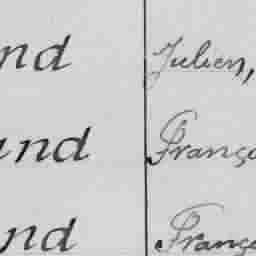 nd Julien,
und França
nd Franç